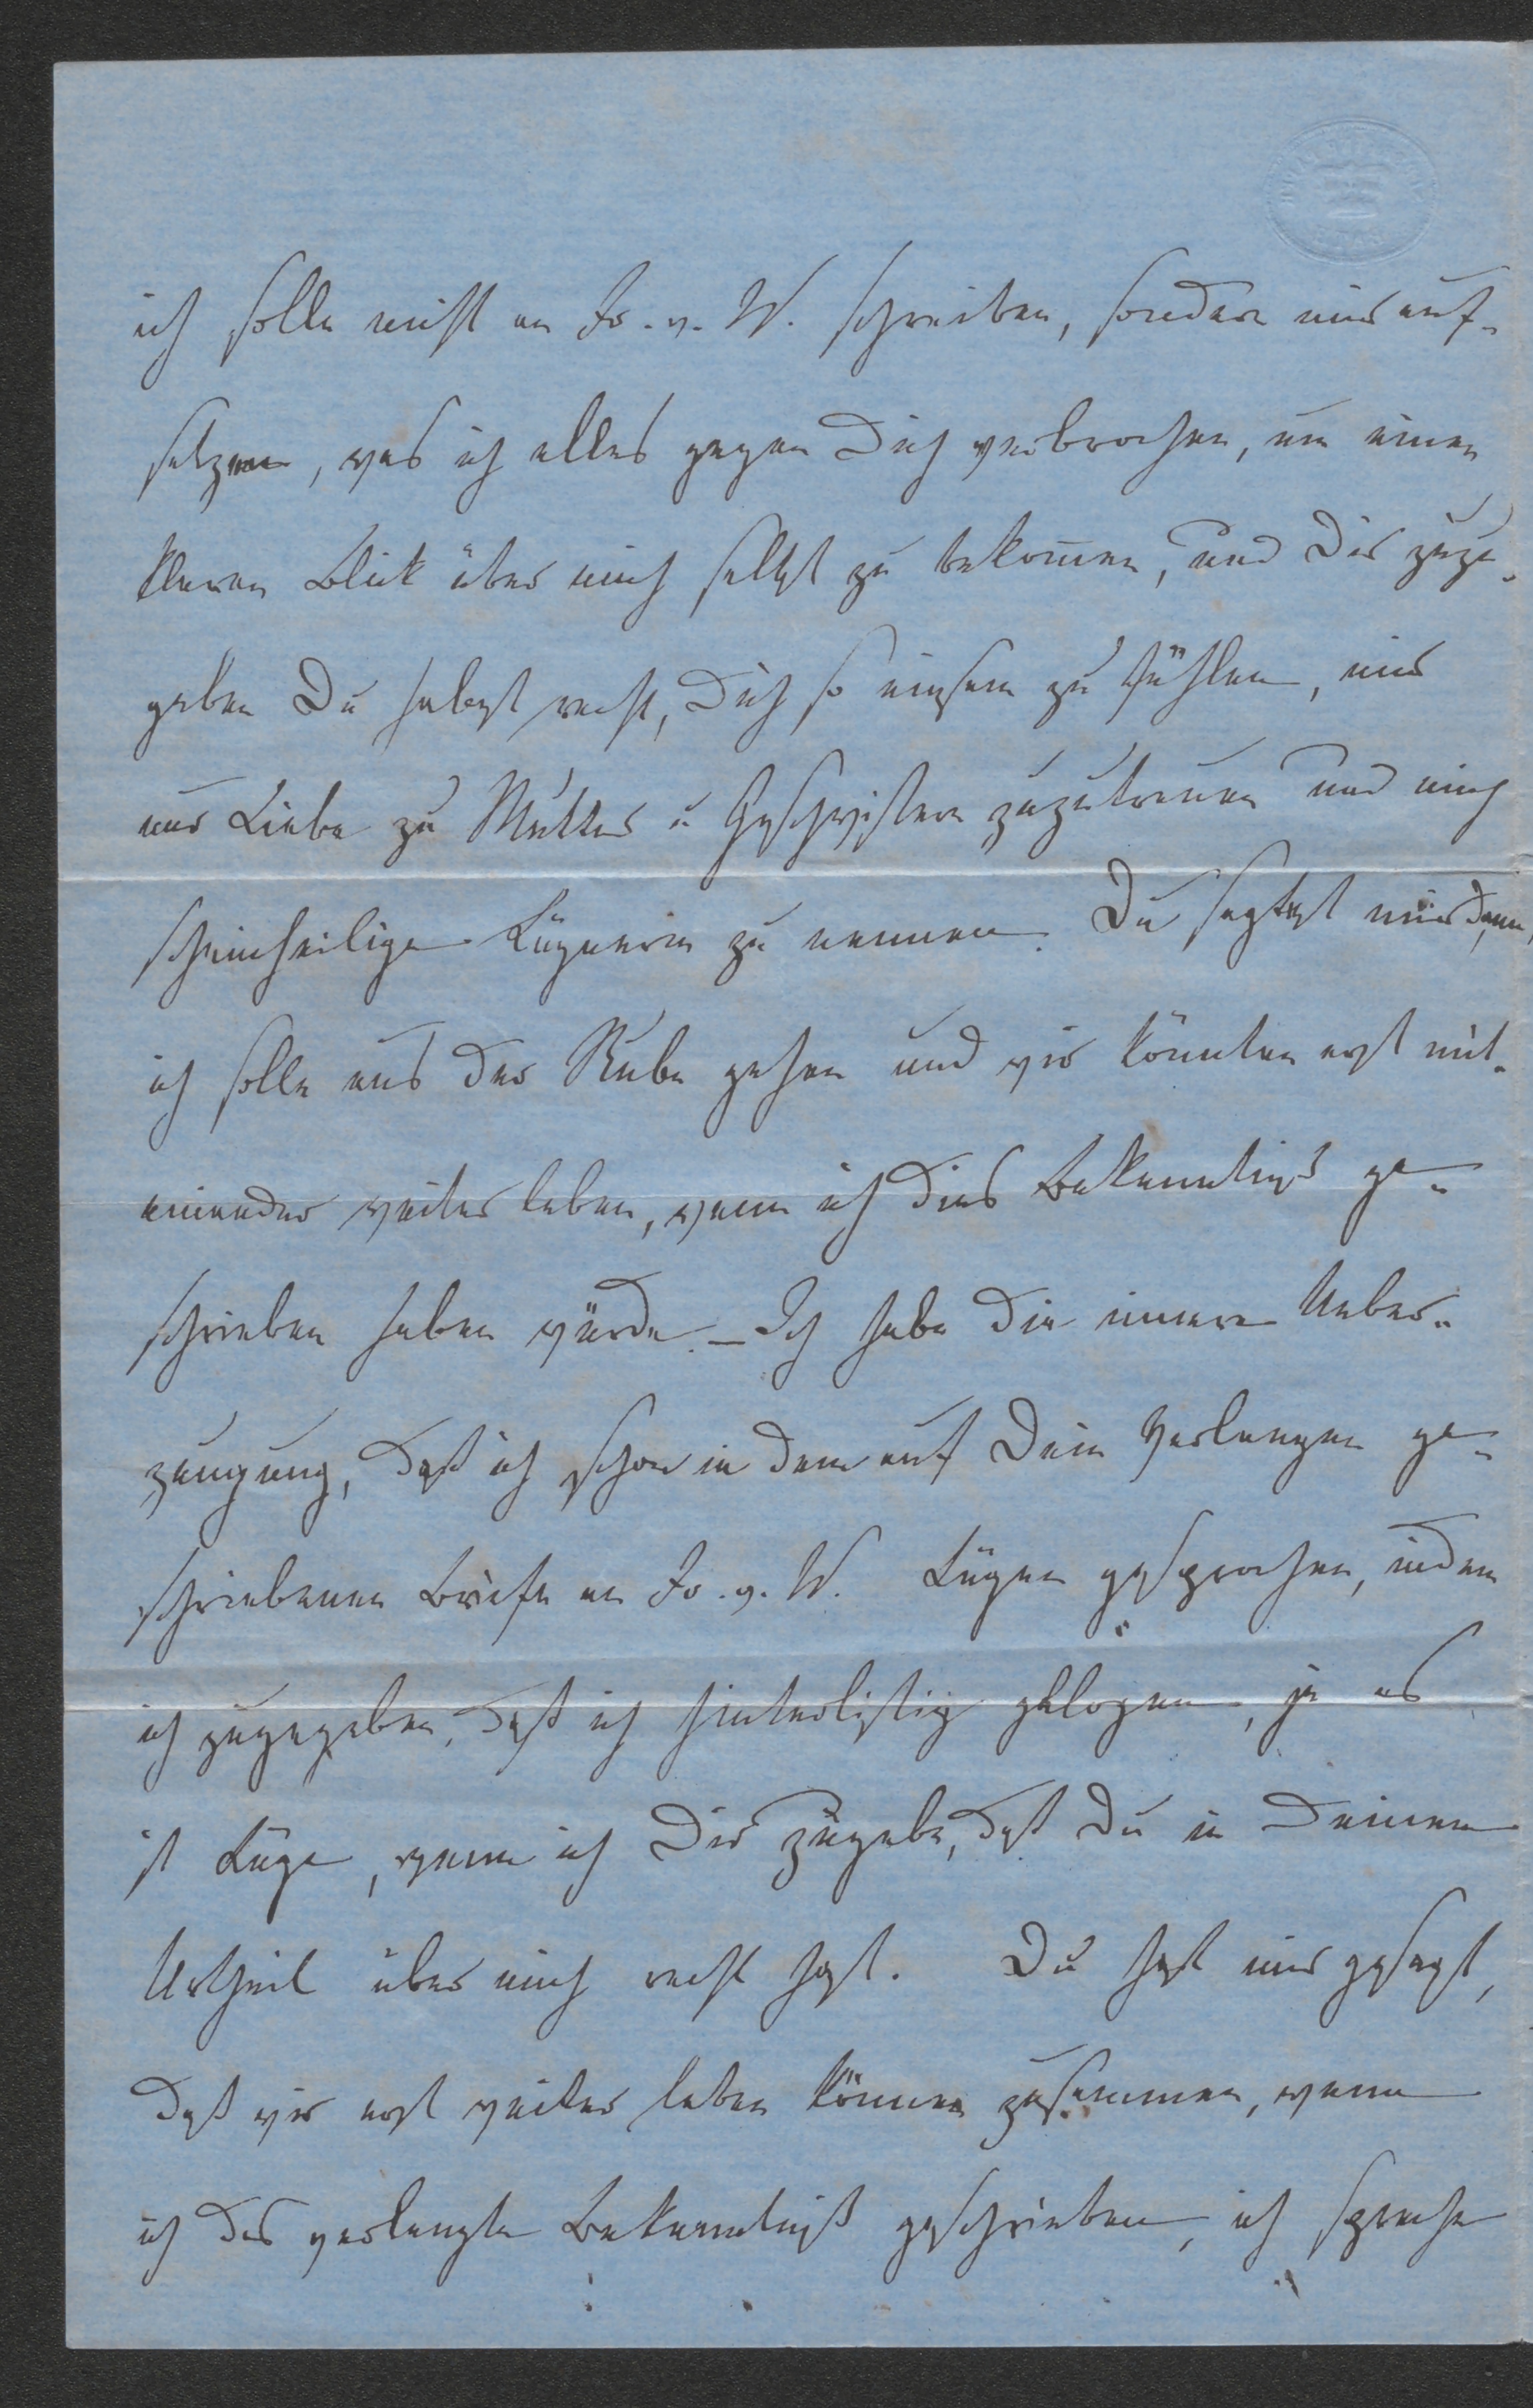 ich solle nicht an Fr. v. W. schreiben, sondern nur auf-
setzen, was ich alles gegen Dich verbrochen, um einen
klaren Blick über mich selbst zu bekom̅en, und Dir zuzu-
geben Du habest recht, Dich so einsam zu fühlen, mir
nur Liebe zu Mutter u Geschwistern zuzutrauen und mich
scheinheilige Lügnerin zu nennen. Du sagtest mir dann,
ich solle aus der Stube gehen und wir könnten erst mit-
einander weiter leben, wenn ich dies Bekenntniß ge-
schrieben haben würde. – Ich habe die innere Ueber-
zeugung, daß ich schon in dem auf Dein Verlangen ge-
schriebenen Briefe an Fr. v. W. Lügen gesprochen, indem
ich zugegeben, daß ich hinterlistig gelogen, ja es
ist Lüge, wenn ich Dir zugebe, daß Du in Deinem
Urtheil über mich recht hast. Du hast mir gesagt,
daß wir erst weiter leben können zusammen, wenn
ich das verlangte Bekenntniß geschrieben, ich spreche